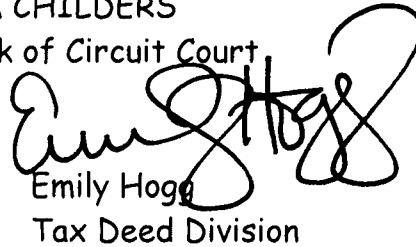 CHILDERS
k of Circuit Court
Emily Hogg
Emily Hogg
Tax Deed Division